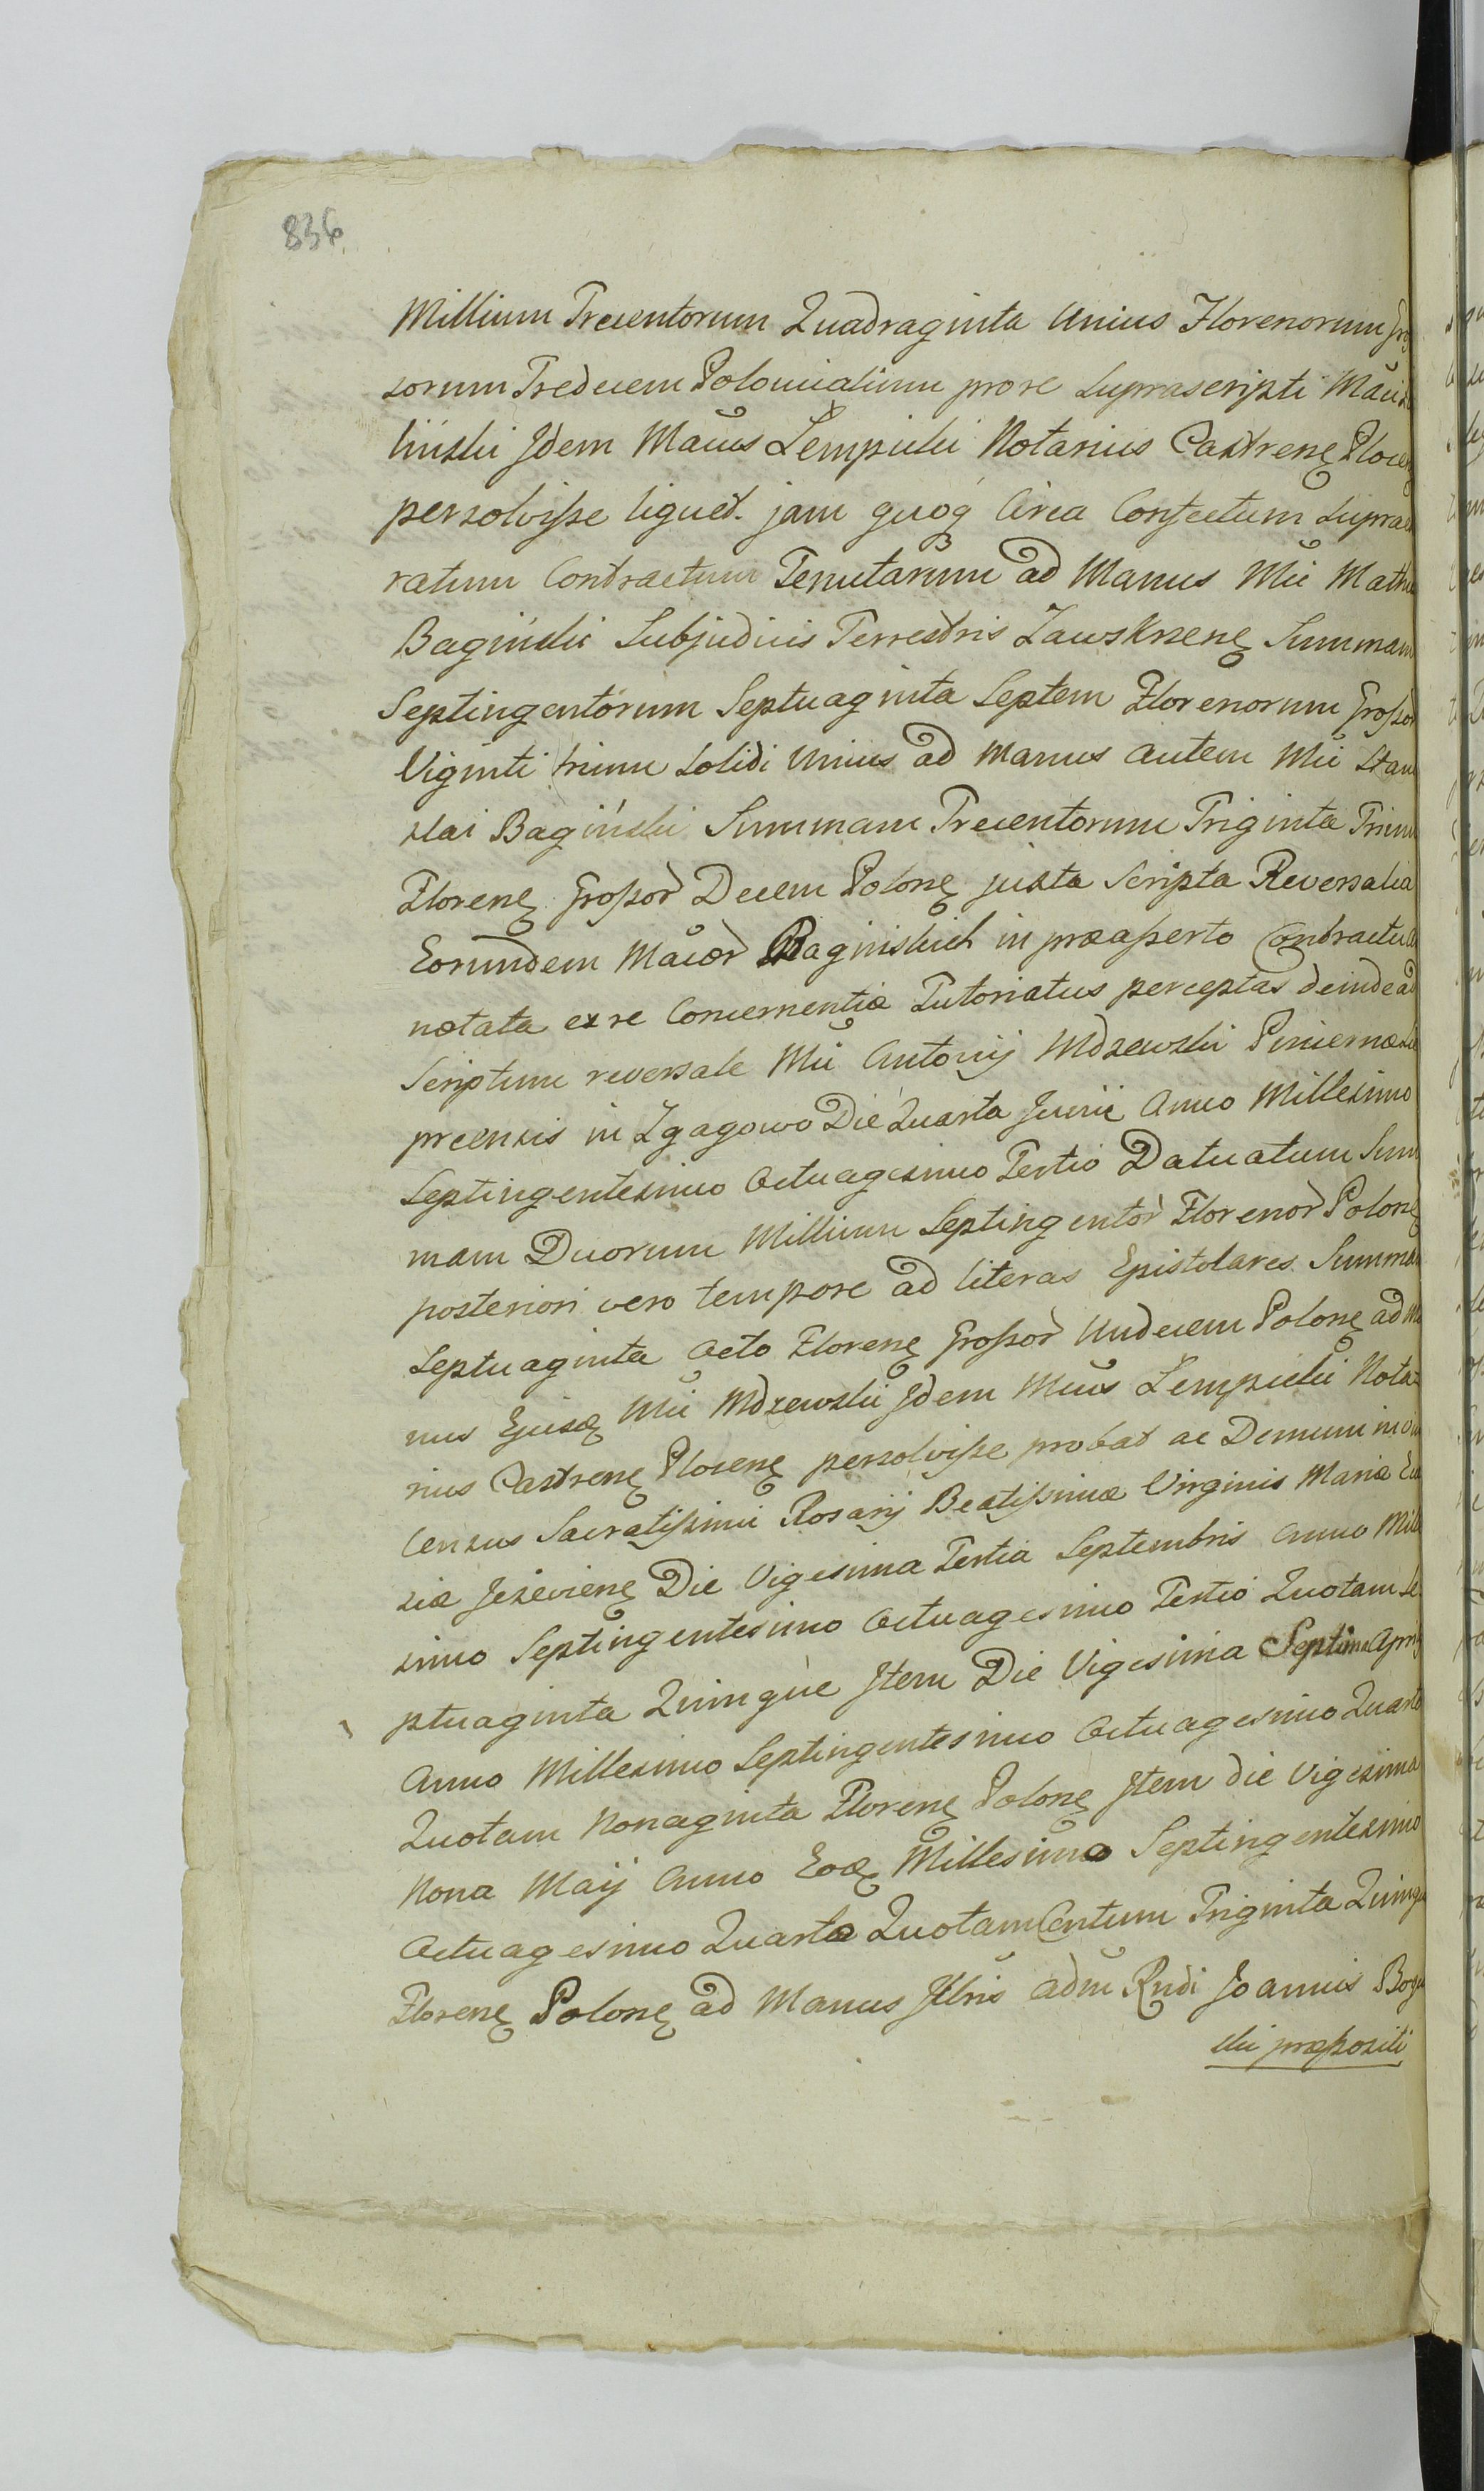 836
Millium Trecentorum Quadraginta Unius Florenorum gro
sorum Tredecem Polonicalium pro re Suprascripti
liński Jdem Mãcus Lempicki Notarius Castrenẽ Plocen
persolviſse liquet. jam quoq́ Circa Confectum Supra
ratum Contractum Tenutarium ad Manus Mci Mathe
Bagiński Subjudicis Terrestris Zawskrzenẽ Summam
Septingentorum Septuaginta Septem Florenorum Groſsor
Viginti trium Solidi Unius ad Manus autem Mci Stani
slai Bagiński Summam Trecentorum Triginta Trium
Florenẽ Groſsor Decem Polonẽ juxta Scripta Reversalia
Eorundem Mãcor Baginskich in præaſserto Contractu
notata ex re Concernentiæ Tutoriatus perceptas deinde ad
Scriptum reversale Mci Antonij Mdzewski Pincernæ
precensis in Zgagowo Die Quarta Junii Anno Millesimo
Septingentesimo Octuagesimo Tertio Datuatum Sum
mam Duorum Millium Septingentor Florenor Polonẽ
posteriori vero tempore ad literas Epistolares Summam
Septuaginta Octo Florenẽ Groſsor Undecem Polonẽ ad Ma
nus Ejusdẽ Mci Mdzewski Jdem Mcus Lempicki Nota
rius Castrenẽ Plocenẽ persolviſse probat ac Demum in vim
Census Sacratiſsimi Rosarij Beatiſsimæ Virginis Mariæ Ecc
siæ Jezeviene Die Vigesima Tertia Septembris Anno Mille
simo Septingentesimo Octuagesimo Tertio Quotam Se
ptuaginta Quinque Jtem Die Vigesima Septima Aprilis
Anno Millesimo Septingentesimo Octuagesimo Quarto
Quotam Nonaginta Florenẽ Polonẽ Jtem die Vigesima
Nona Maij Anno Eodẽ Millesimo Septingentesimo
Octuagesimo Quarto Quotam Centum Triginta Quinque
Florenẽ Polonẽ ad Manus Jllris adm Rndi Joannis
ski præpositi